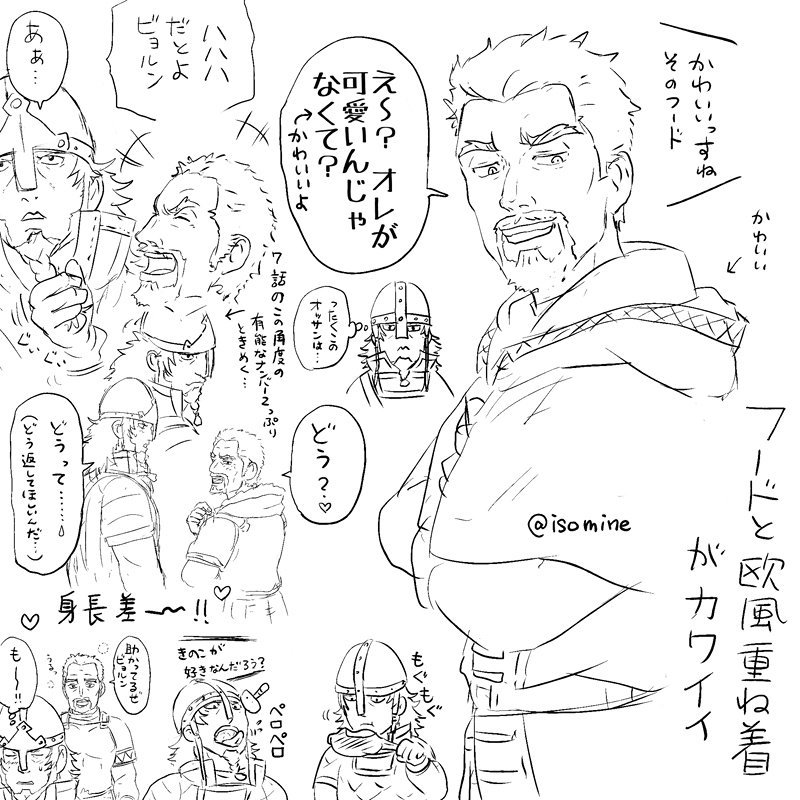 かわいいっすね
そのフード
かわいい
え〜?オレが
可愛いんじゃ
なくて?
かわいいよ
ハハハ
だとよ
ビョルン
あぁ…
7話のこの角度の
有能なナンバー2っぷり
ときめく…
ったくこの
オッサンは…
どう?♡
どうって……
(どう返してほしいんだ…)
身長差〜!!
@isomine
フードと欧風重ね着
がカワイイ
も〜!!
助かってるぜ
ビョルン
きのこが
好きなんだろう?
ペロペロ
もぐもぐ